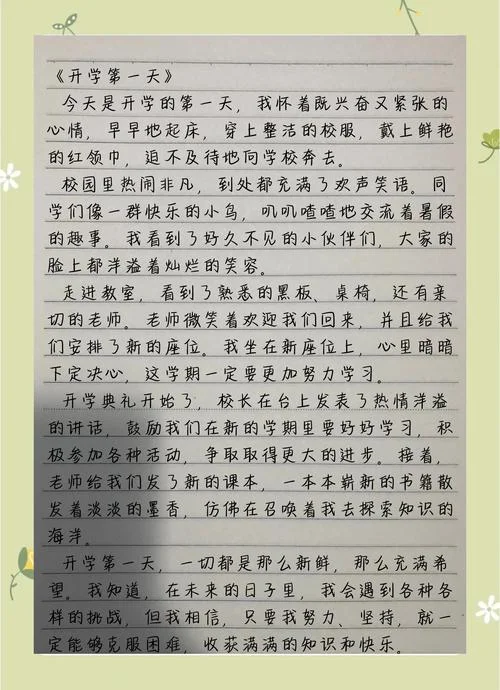 《开学第一天》
今天是开学的第一天，我怀着既兴奋又紧张的
心情，早早地起床，穿上整洁的校服，戴上鲜艳
的红领巾，迫不及待地向学校奔去。
校园里热闹非凡，到处都充满了欢声笑语。同
学们像一群快乐的小鸟，叽叽喳喳地交流着暑假
的趣事。我看到了好久不见的小伙伴们，大家的
脸上都洋溢着灿烂的笑容。
走进教室，看到了熟悉的黑板、桌椅，还有亲
切的老师。老师微笑着欢迎我们回来，并且给我
们安排了新的座位。我坐在新座位上，心里暗暗
下定决心，这学期一定要更加努力学习。
开学典礼开始了，校长在台上发表了热情洋溢
的讲话，鼓励我们在新的学期里要好好学习，积
极参加各种活动，争取取得更大的进步。接着，
老师给我们发了新的课本，一本本崭新的书籍散
发着淡淡的墨香，仿佛在召唤着我去探索知识的
海洋。
开学第一天，一切都是那么新鲜，那么充满希
望。我知道，在未来的日子里，我会遇到各种各
样的挑战，但我相信，只要我努力、坚持，就一
定能够克服困难，收获满满的知识和快乐。